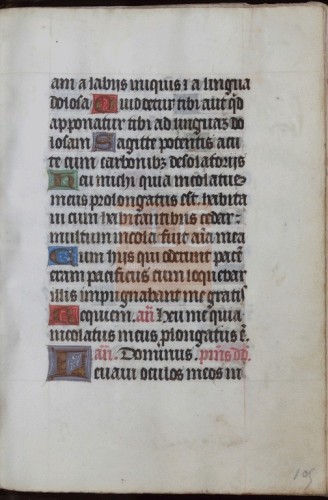 am a labijs iniquis ⁊ a lingua
dolosa Quid detur tibi aut qd
apponatur tibi ad linguaz do
losam Sagitte potentis acu
te cum carbonibz desolatorijs
Heu michi quia incolatus
meus prolongatus est habita
ui cum habitantibus cedar
multum incola fuit aīa mea
Cum hijs qui oderunt pacē
eram pacificus cum loquebar
illis impugnabant me gratis
Requiem. añ Heu me quia
incolatus meus plongatus ē.
añ. Dominus. pīus dd.
Leuaui oculos meos in
105